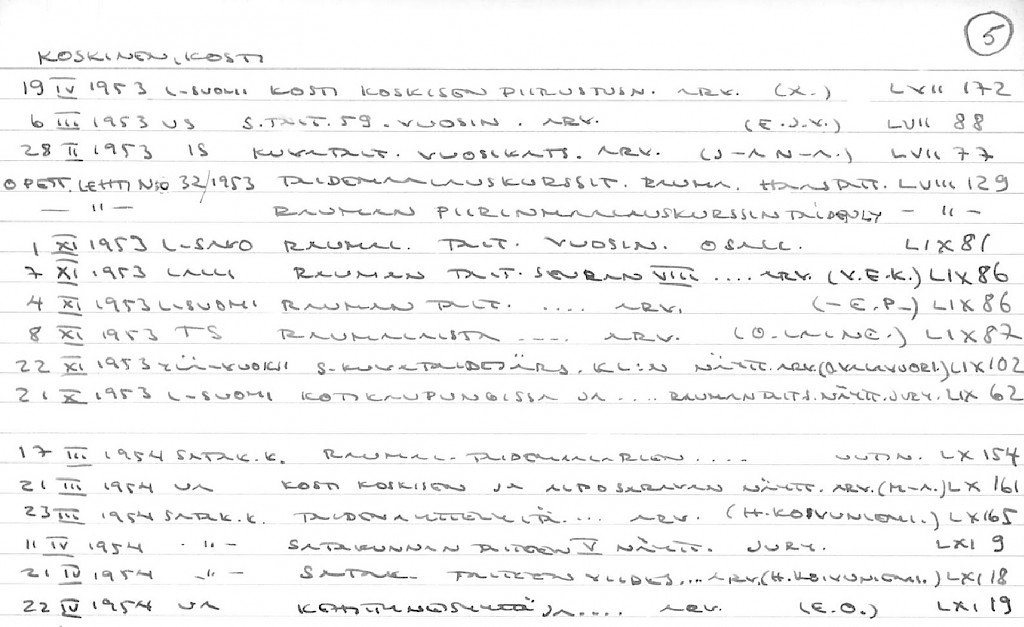 5
KOSKINEN, KOSTI
19 IV 1953 L-SUOMI KOSTI KOSKISEN PIIRUSTUSN. ARV. (X.) LVII 172
6 III 1953 US S.TAIT. 59. VUOSIN. ARV. (E.J.V.) LVII 88
28 II 1953 IS KUVATAIT. VUOSIKATS. ARV. (J-A N-A.) LVII 77
OPETT. LEHTI N:o 32/1953 TAIDEMAALAUSKURSSIT. RAUMA. LVIII 129
— " — RAUMAN PIIRIN MAALAUSKURSSIN — " —
1 XI 1953 L-SAVO RAUMAL. TAIT. VUOSIN. OSALL. LIX 81
7 XI 1953 LALLI RAUMAN TAIT. SEURAN VIII .... ARV. (V.E.K.) LIX 86
4 XI 1953 L-SUOMI RAUMAN TAIT. .... ARV. (-E.P-) LIX 86
8 XI 1953 TS RAUMALAISTA .... ARV. (O. LAINE.) LIX 87
22 XI 1953 S-KUVATAIDEJÄRJ. KL:N NÄYTT. ARV. LIX 102
21 X 1953 L-SUOMI KOTIKAUPUNGISSA JA .... RAUMAN TAIT.S. NÄYTT. JURY. LIX 62
17 III 1954 SATAK.K. RAUMAL. TAIDEMAALARIEN .... UUTIN. LX 154
21 III 1954 UA KOSTI KOSKISEN JA NÄYTT. ARV. (M-A.) LX 161
23 III 1954 SATAK.K. TAIDENÄYTTELYITÄ .... ARV. (H. KOIVUNIEMI.) LX 165
11 IV 1954 - " - SATAKUNNAN TAITEEN V NÄYTT. JURY. LXI 9
21 IV 1954 - " - SATAK. TAITEEN VIIDES ... ARV. (H. KOIVUNIEMI.) LXI 18
22 IV 1954 UA JA .... ARV. (E.O.) LXI 19